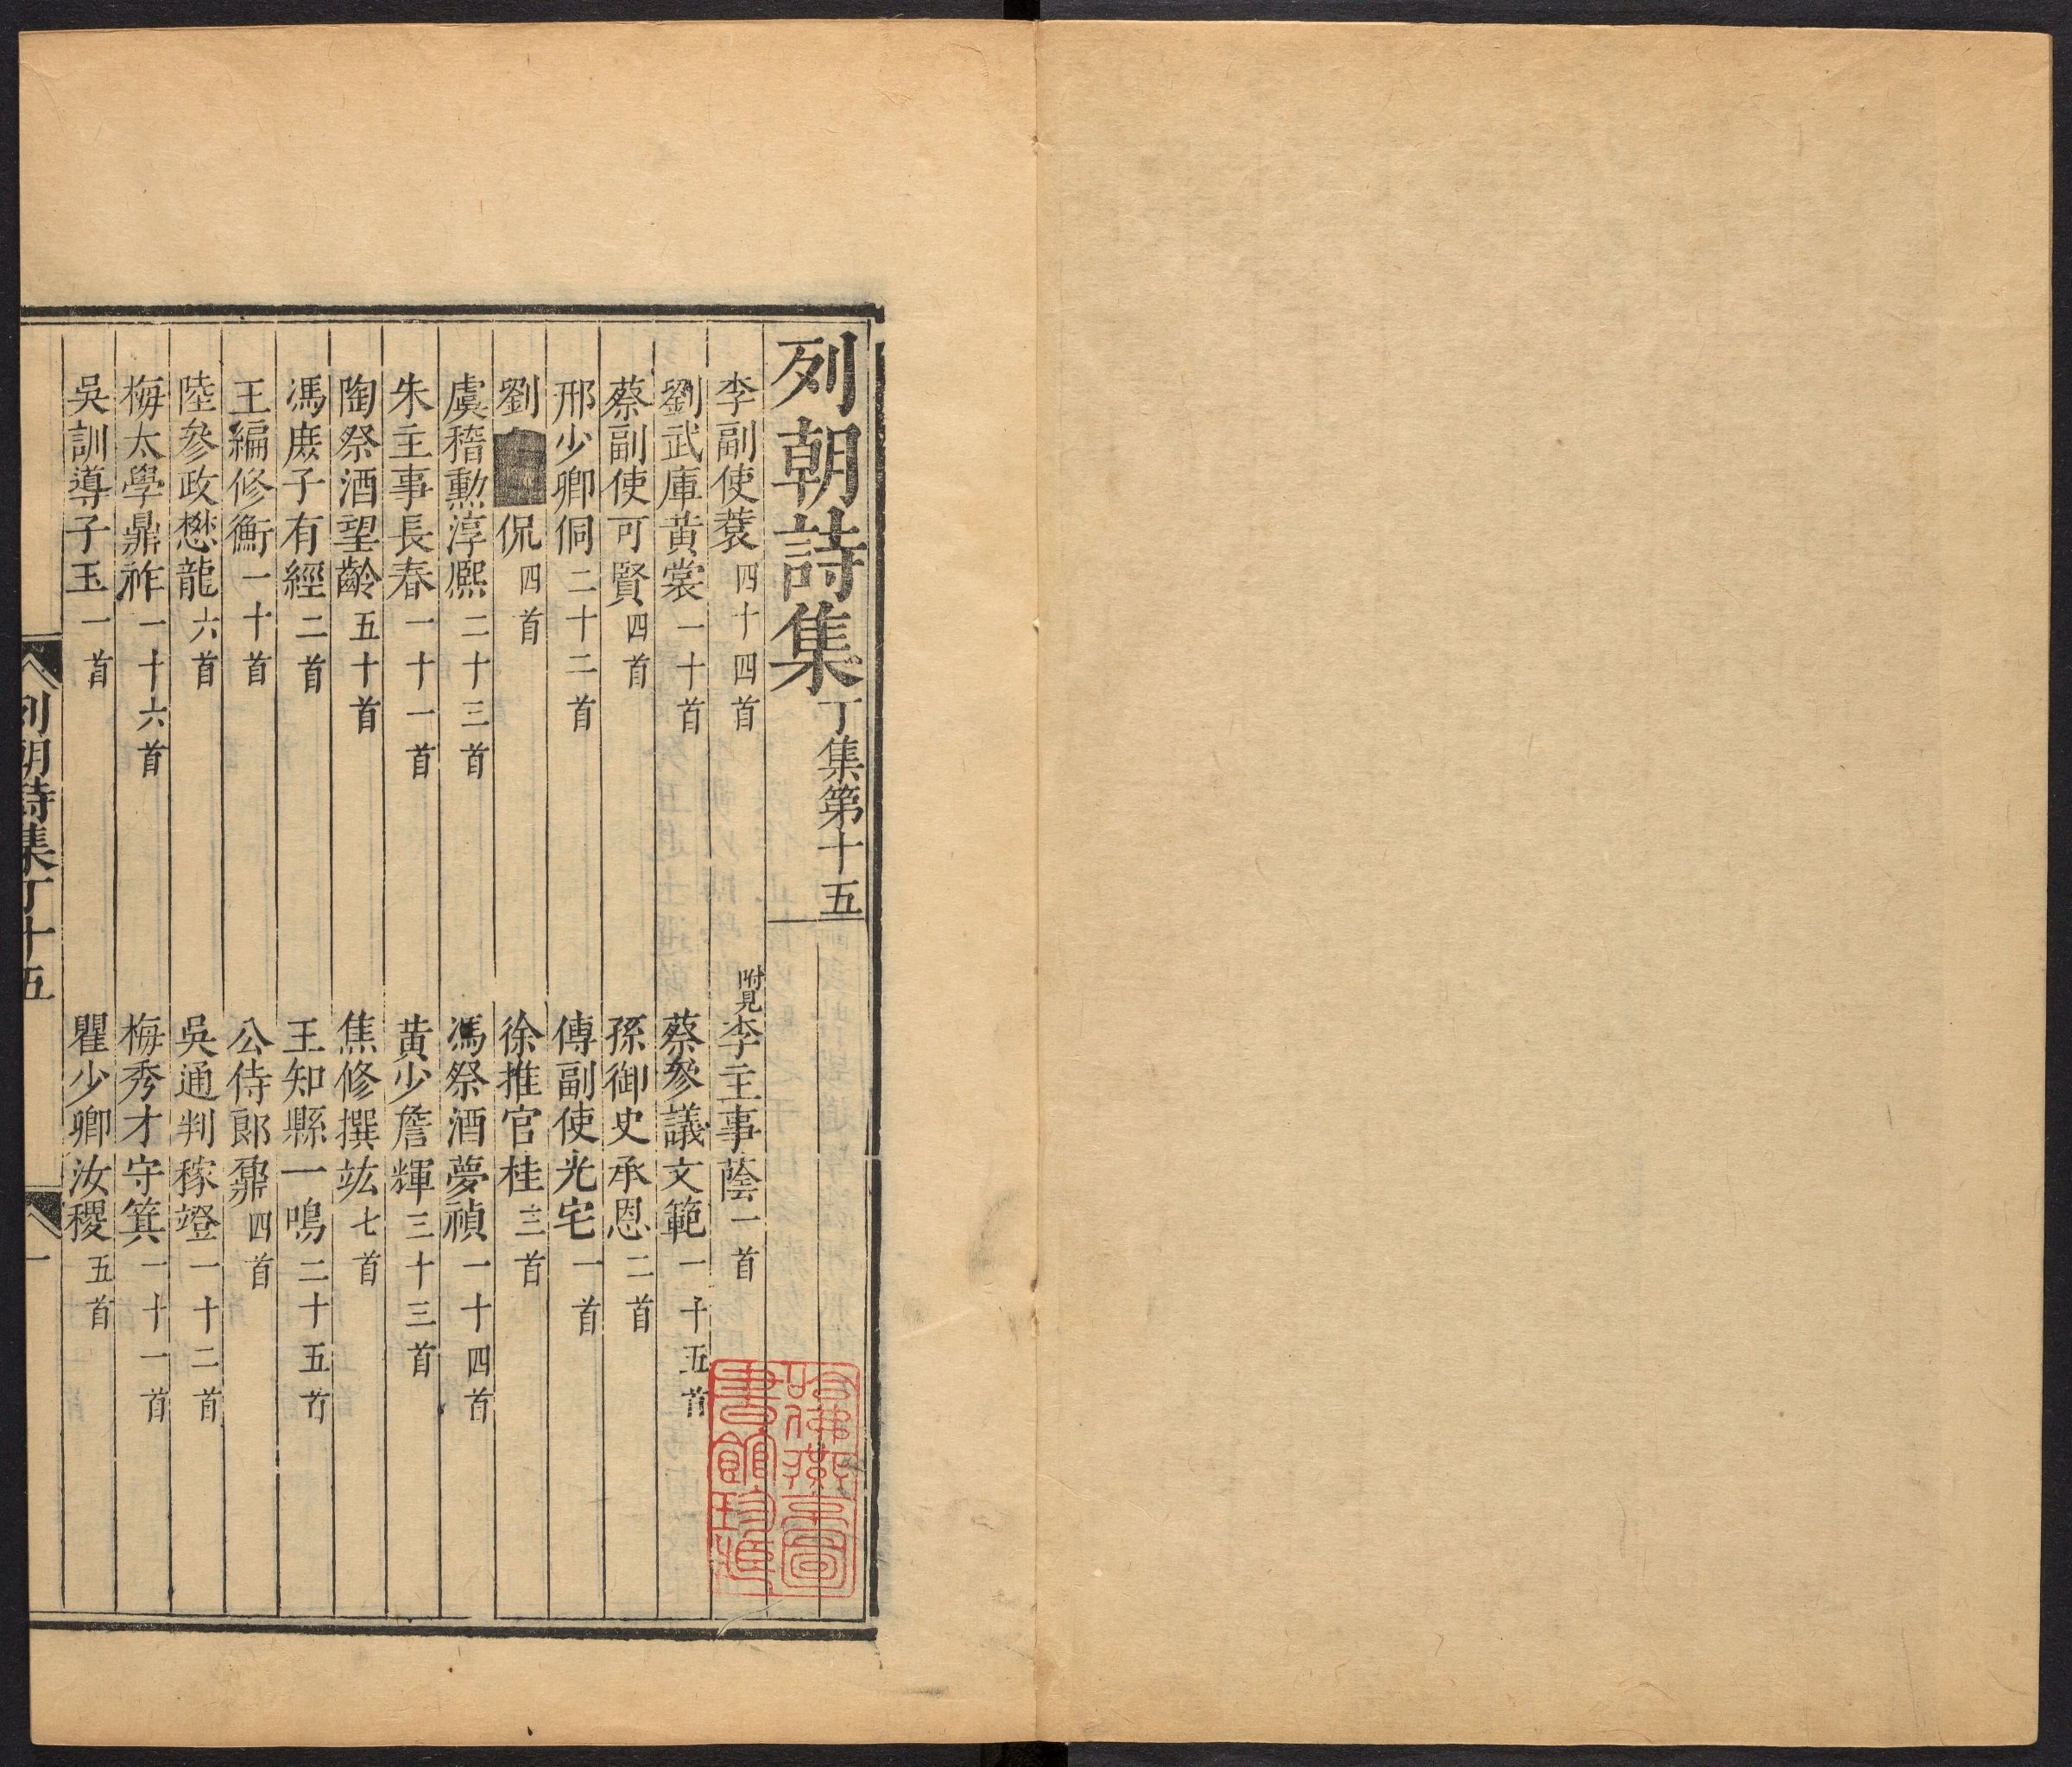 列朝詩集丁集第十五
李副使蓘四十四首 附見李主事蔭一首
劉武庫黃裳一十首 蔡參議文範一十五首
蔡副使可賢四首 孫御史承恩二首
邢少卿侗二十二首 傅副使光宅一首
劉 侃四首 徐推官桂三首
虞稽勲淳熙二十三首 馮祭酒夢禎一十四首
朱主事長春一十一首 黃少詹輝三十三首
陶祭酒望齡五十首 焦修撰竑七首
馮庶子有經二首 王知縣一鳴二十五首
王編修衡一十首 公侍郎鼐四首
陸參政懋龍六首 吳通判稼竳一十二首
梅太學鼎祚一十六首 梅秀才守箕一十一首
吳訓導子玉一首 瞿少卿汝稷五首
列朝詩集丁十五 一
哈佛燕京圖
書館珍藏